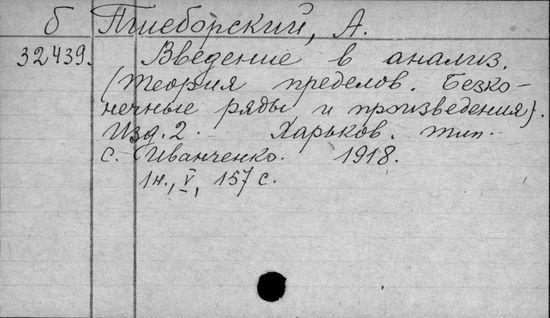 б Пшеборский, А.
32439. Введение в анализ.
(Теория пределов. Безко-
нечные ряды и произведения).
Изд. 2. Харьков. тип.
С. Иванченко. 1918.
1н., V, 157 с.